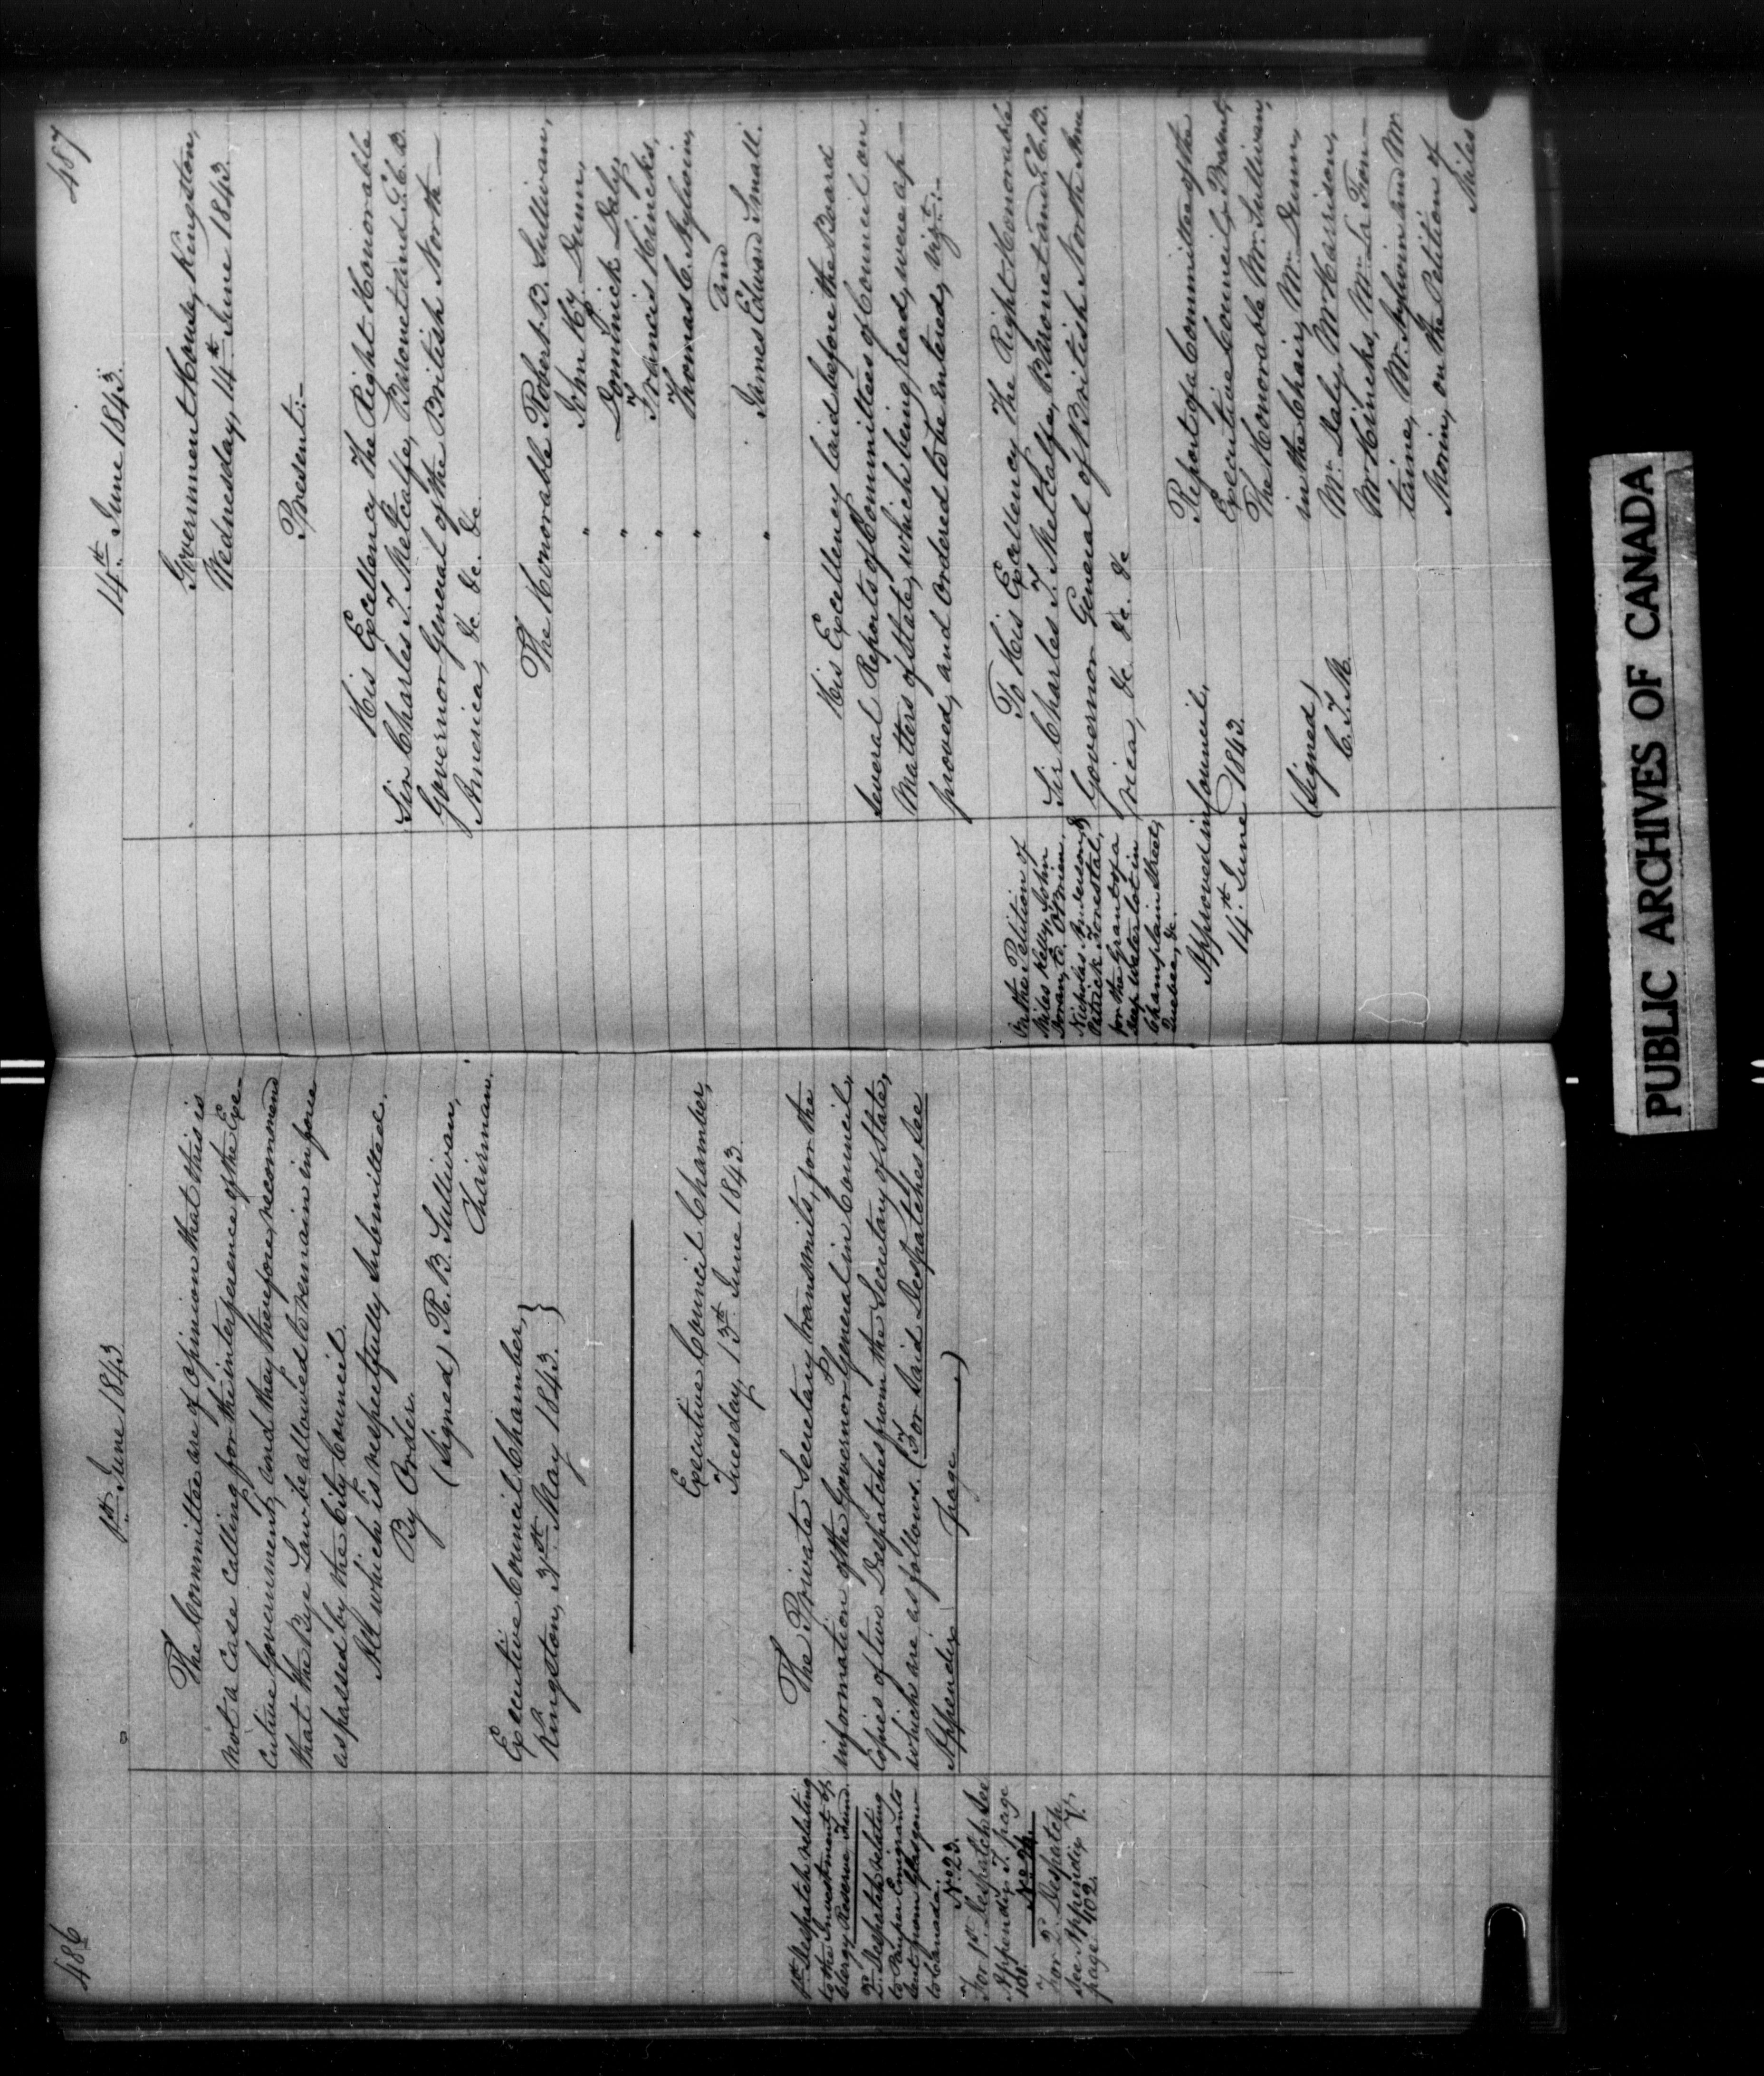 486
1st June 1843
The Committee are of opinion that this is
not a Case calling for the interference of the Exe-
cutive Government, and they therefore, recommend
that the Bye Law be allowed to remain in force
as passed by the City Council.
All which is respectfully Submitted.
By Order.
(Signed) R. B. Sullivan,
Chairman.
Executive Council Chamber,
Kingston, May 1843.
Executive Council Chamber,
Tuesday, 13th June 1843.
The Private Secretary transmits, for the
information of the Governor General in Council,
Copies of two Despatches from the Secretary of State,
which are as follows. (For Said Despatches See
Appendix page )
1st Despatch relating
to the Investment of
Clergy Reserve Fund.
2d. Despatch relating
to Pauper Emigrants
sent from Glasgow
to Canada.
No. 23.
For 1st Despatch See
Appendix T. page
101
No. 24.
For 2d. Despatch
See Appendix T.
page 102.
487
14th June 1843.
Government House, Kingston,
Wednesday, 14th June 1843.
Present:—
His Excellency The Right Honorable
Sir Charles T. Metcalfe, Baronet and G.C.B.
Governor General of the British North
America, &c. &c. &c.
The Honorable Robert B. Sullivan,
" John Hy. Dunn,
" Dominick Daly,
" Francis Hincks,
" Thomas C. Aylwin,
and
" James Edward Small.
His Excellency laid before the Board
several Reports of Committees of Council on
Matters of State, which being read, were ap-
proved, and Ordered to be entered, vizt:—
To His Excellency The Right Honorable
Sir Charles T. Metcalfe, Baronet and G.C.B.
Governor General of British North Ame
rica, &c. &c. &c
On the Petition of
Miles Kelly, John
Doran, C. O'Brien,
Nicholas Anderson, &
Patrick Forestal,
for the Grant of a
deep Water lot in
Champlain Street,
Quebec, &c.
Approved in Council,
14th June 1843.
(Signed)
C. T. M.
Report of a Committee of the
Executive Council, Present,
The Honorable Mr. Sullivan,
in the Chair, Mr. Dunn,
Mr. Daly, Mr Harrison,
Mr Hincks, Mr. La Fon-
taine, Mr. Aylwin and Mr
Morin, on the Petition of
Miles
PUBLIC ARCHIVES OF CANADA